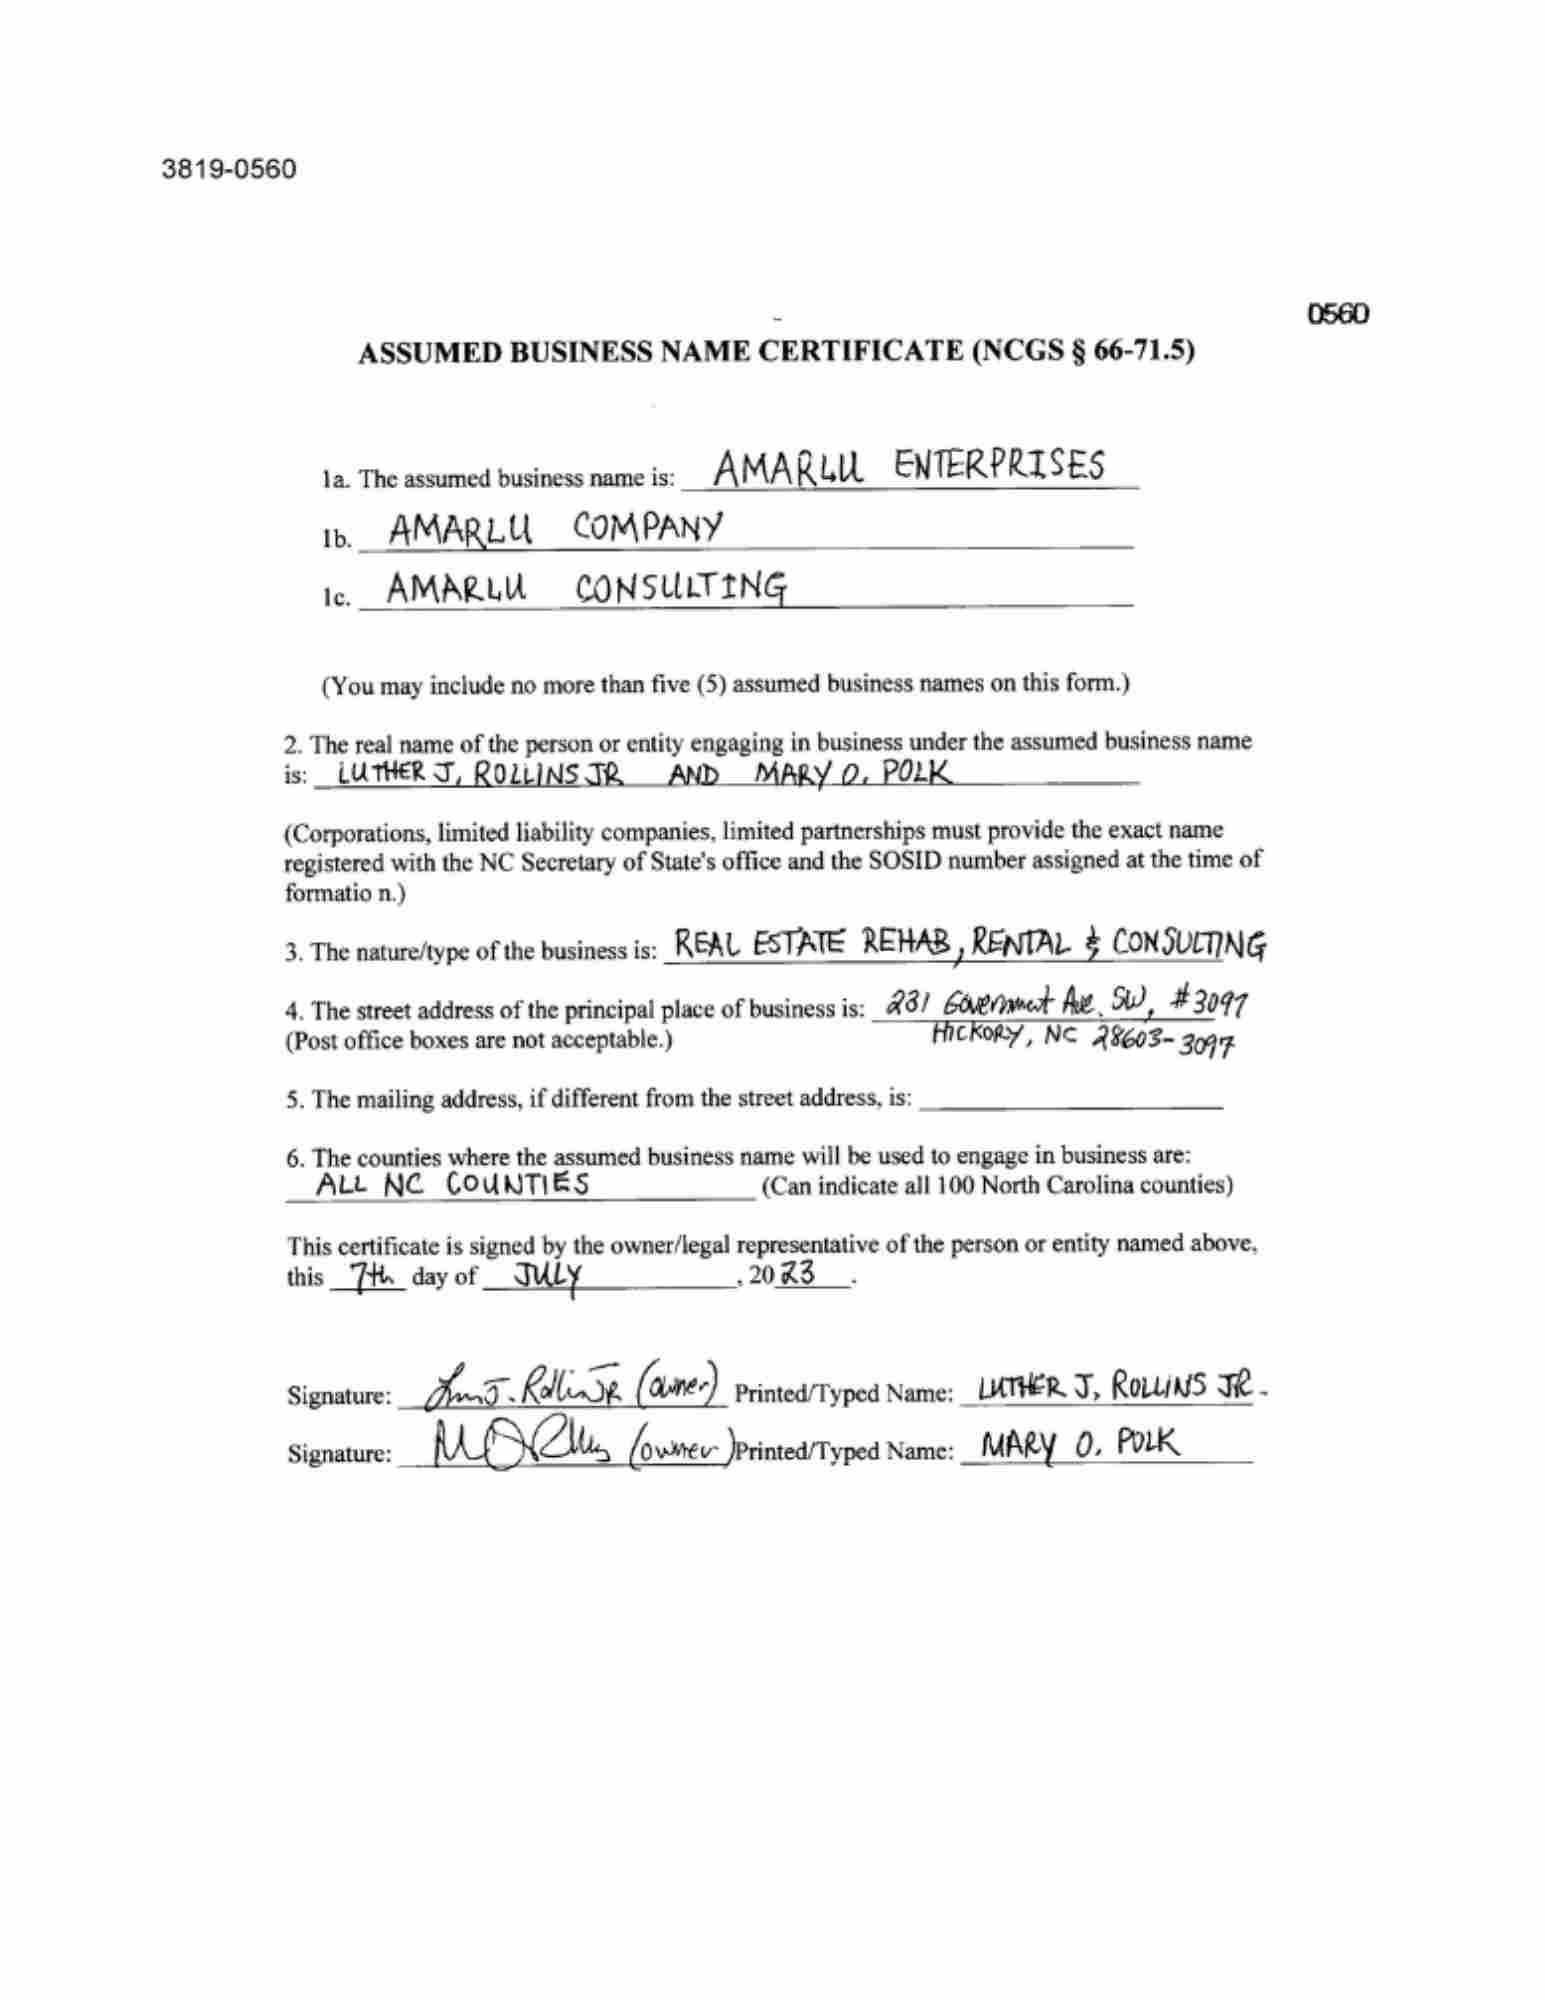 3819-0560
0560
ASSUMED BUSINESS NAME CERTIFICATE (NCGS § 66-71.5)
1a. The assumed business name is: AMARLU ENTERPRISES
1b. AMARLU COMPANY
1c. AMARLU CONSULTING
(You may include no more than five (5) assumed business names on this form.)
2. The real name of the person or entity engaging in business under the assumed business name
is: LUTHER J. ROLLINS JR AND MARY O. POLK
(Corporations, limited liability companies, limited partnerships must provide the exact name
registered with the NC Secretary of State's office and the SOSID number assigned at the time of
formatio n.)
3. The nature/type of the business is: REAL ESTATE REHAB, RENTAL & CONSULTING
4. The street address of the principal place of business is: 231 Government Ave. SW, #3097
(Post office boxes are not acceptable.) HICKORY, NC 28603-3097
5. The mailing address, if different from the street address, is:
6. The counties where the assumed business name will be used to engage in business are:
ALL NC COUNTIES (Can indicate all 100 North Carolina counties)
This certificate is signed by the owner/legal representative of the person or entity named above,
this 7th day of JULY, 2023.
Signature: J. Rollins JR (owner) Printed/Typed Name: LUTHER J. ROLLINS JR.
Signature: (owner) Printed/Typed Name: MARY O. POLK